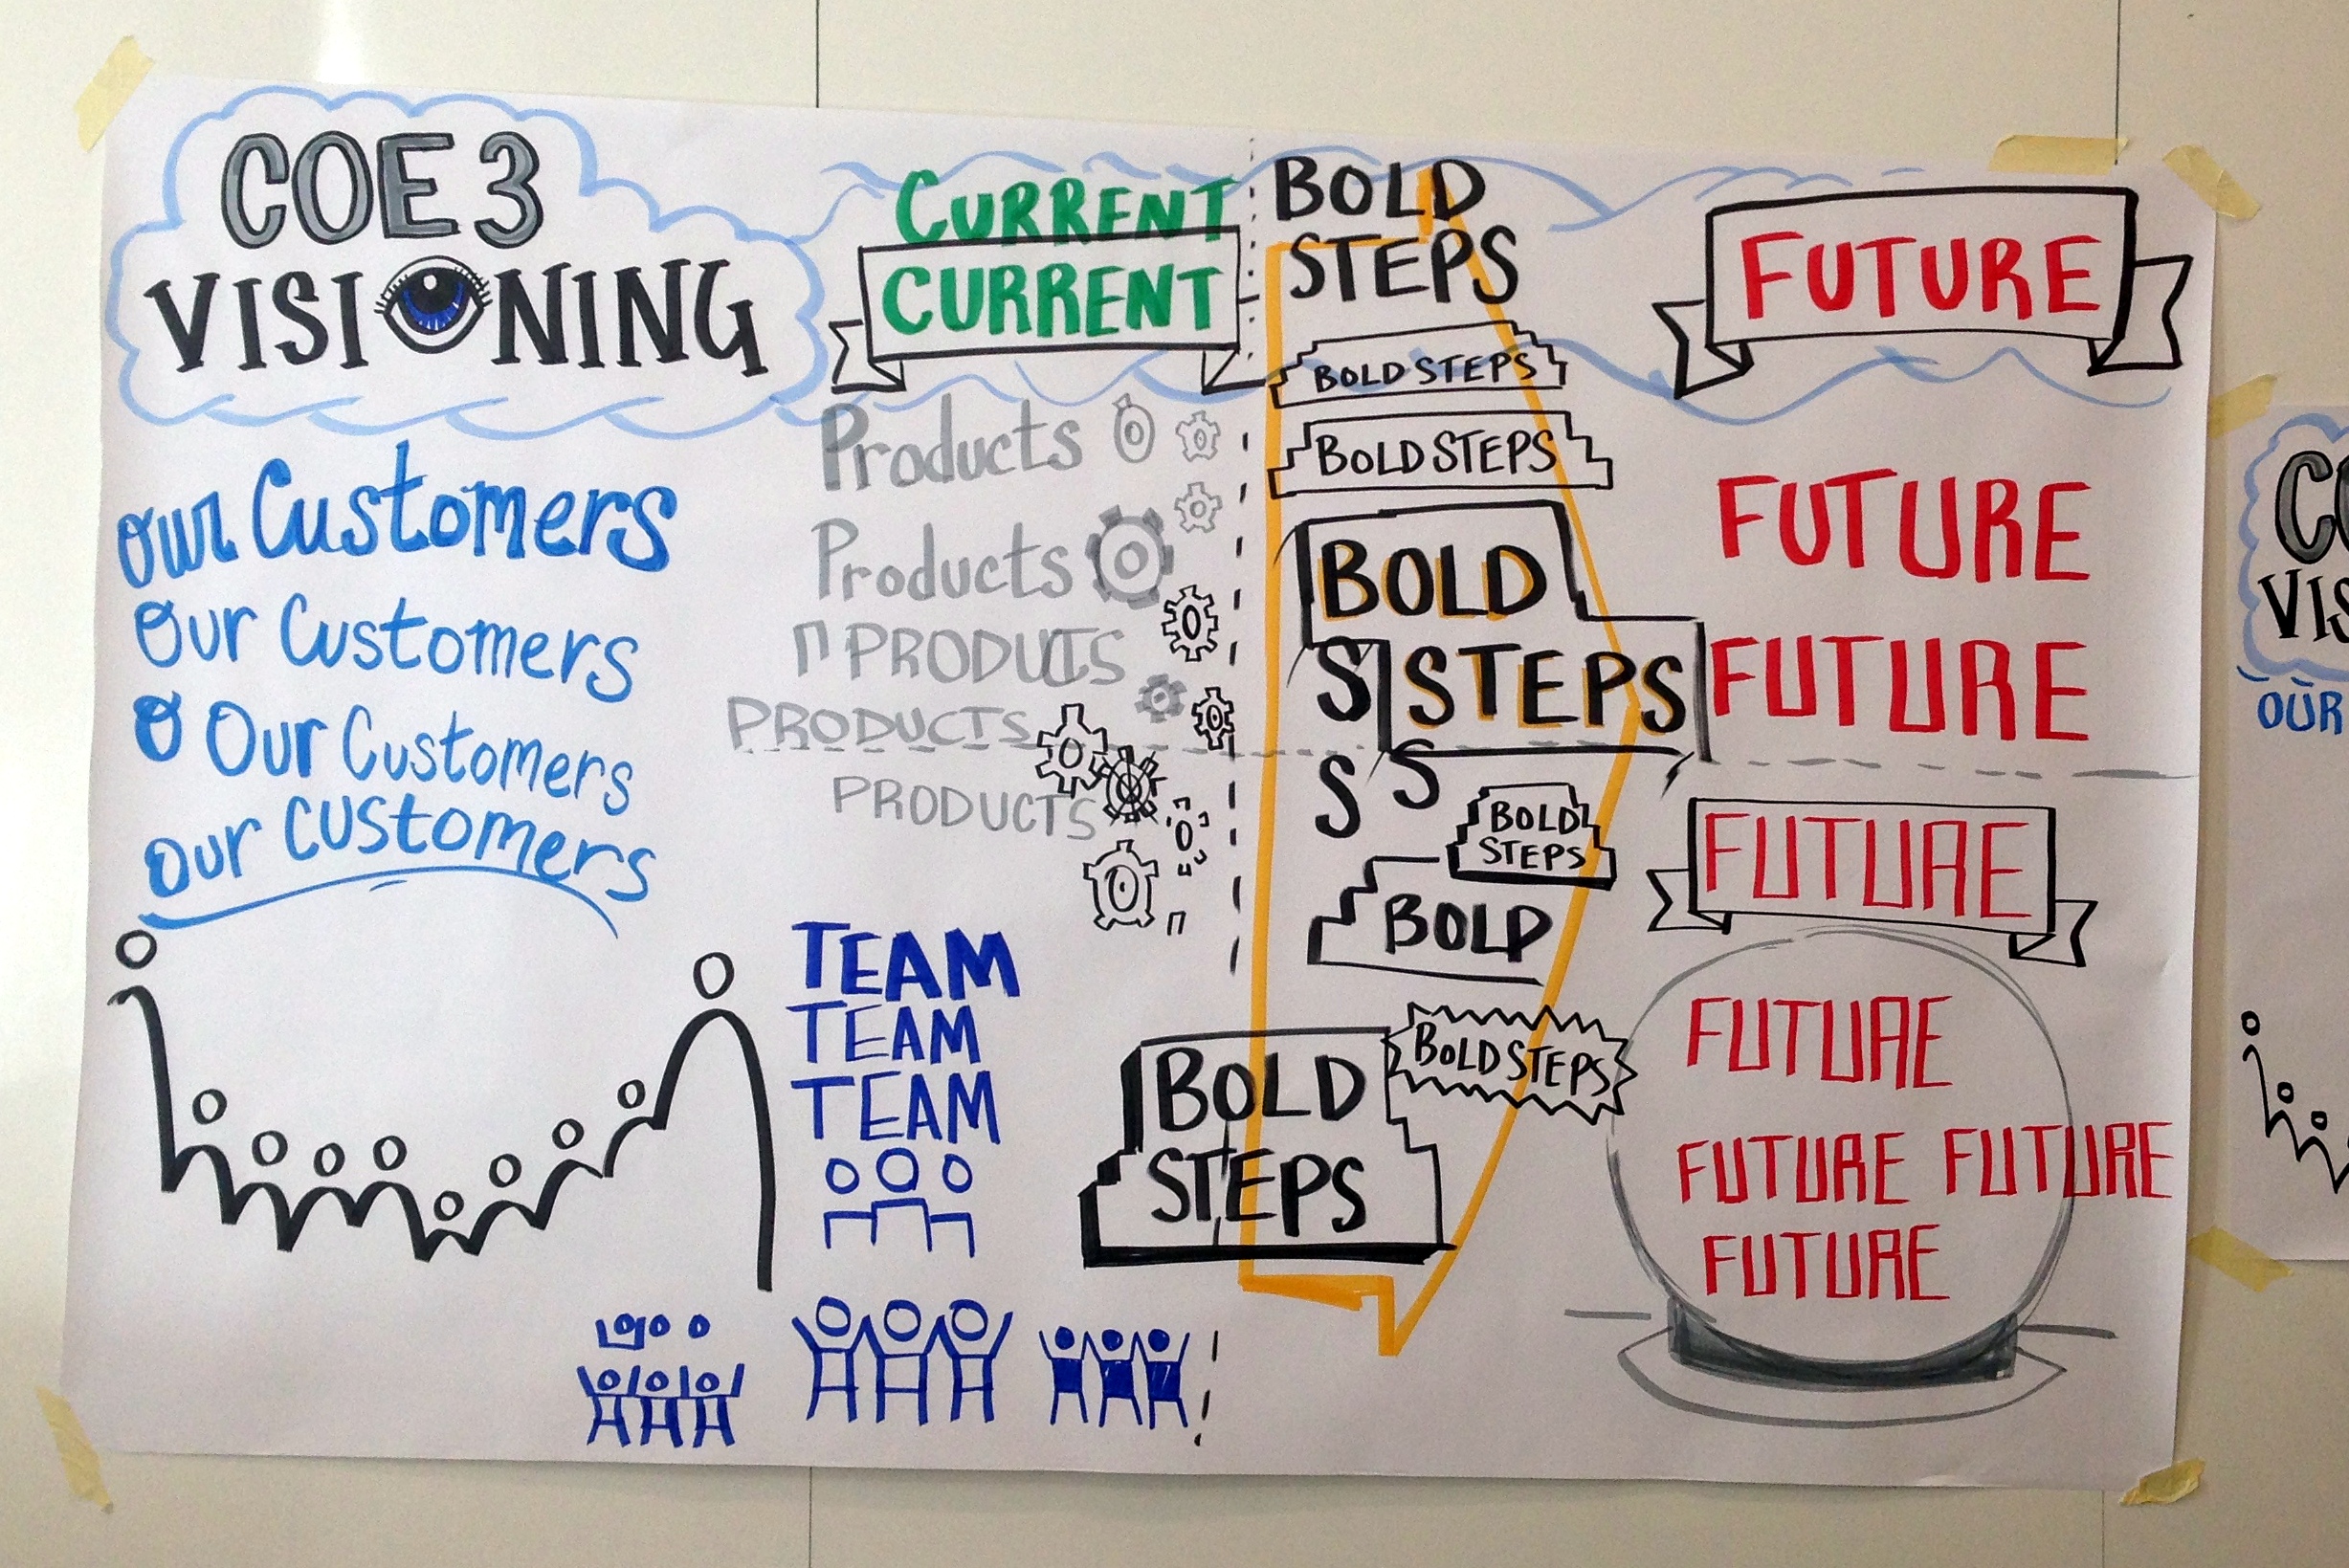 COE 3
VISIONING
our Customers
Our Customers
O Our Customers
our customers
CURRENT
CURRENT
Products
Products
PRODUCTS
PRODUCTS
PRODUCTS
TEAM
TEAM
TEAM
BOLD
STEPS
BOLD STEPS
BOLD STEPS
BOLD
S STEPS
S S
BOLD
STEPS
BOLD
BOLD STEPS
BOLD
STEPS
FUTURE
FUTURE
FUTURE
FUTURE
FUTURE
FUTURE FUTURE
FUTURE
CO
VIS
OUR